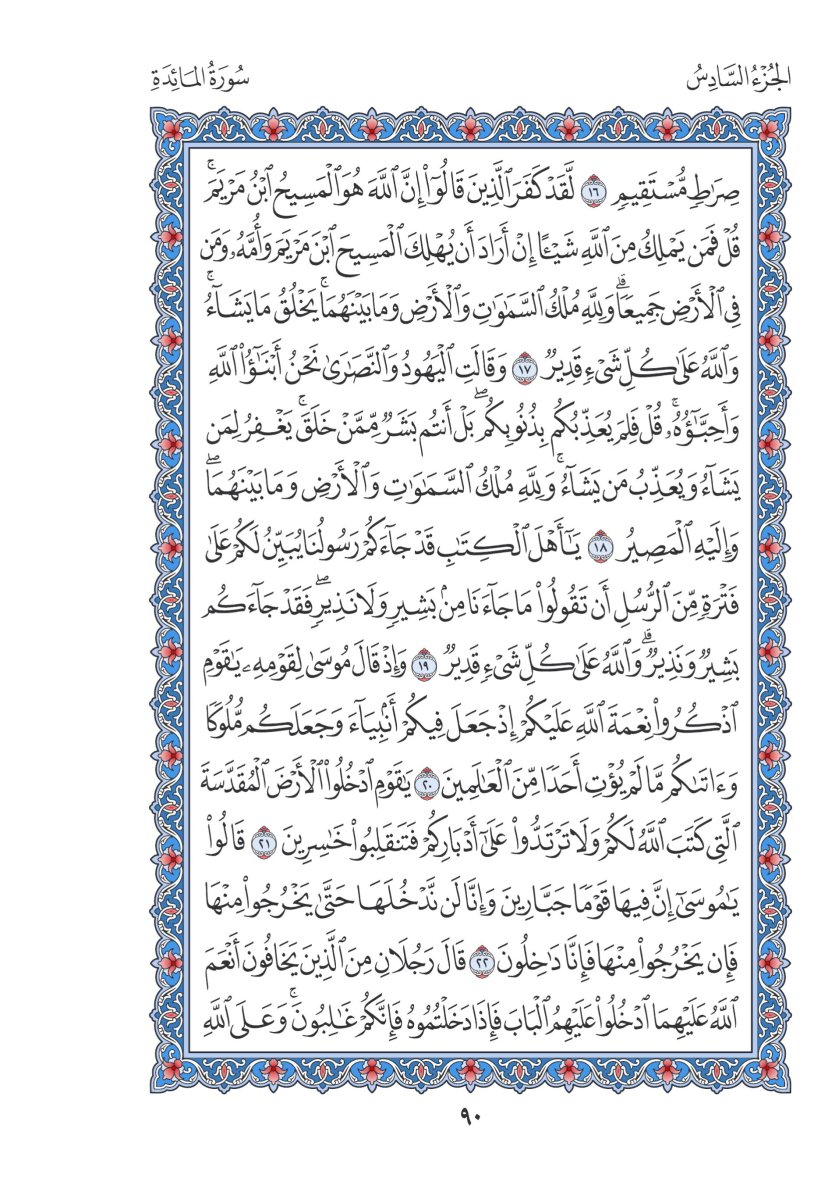 الجُزْءُ السَّادِسُ
سُورَةُ المَائِدَةِ
صِرَٰطٖ مُّسۡتَقِيمٖ ١٦ لَّقَدۡ كَفَرَ ٱلَّذِينَ قَالُوٓاْ إِنَّ ٱللَّهَ هُوَ ٱلۡمَسِيحُ ٱبۡنُ مَرۡيَمَۚ
قُلۡ فَمَن يَمۡلِكُ مِنَ ٱللَّهِ شَيۡـًٔا إِنۡ أَرَادَ أَن يُهۡلِكَ ٱلۡمَسِيحَ ٱبۡنَ مَرۡيَمَ وَأُمَّهُۥ وَمَن
فِي ٱلۡأَرۡضِ جَمِيعٗاۗ وَلِلَّهِ مُلۡكُ ٱلسَّمَٰوَٰتِ وَٱلۡأَرۡضِ وَمَا بَيۡنَهُمَاۚ يَخۡلُقُ مَا يَشَآءُۚ
وَٱللَّهُ عَلَىٰ كُلِّ شَيۡءٖ قَدِيرٞ ١٧ وَقَالَتِ ٱلۡيَهُودُ وَٱلنَّصَٰرَىٰ نَحۡنُ أَبۡنَٰٓؤُاْ ٱللَّهِ
وَأَحِبَّٰٓؤُهُۥۚ قُلۡ فَلِمَ يُعَذِّبُكُم بِذُنُوبِكُمۖ بَلۡ أَنتُم بَشَرٞ مِّمَّنۡ خَلَقَۚ يَغۡفِرُ لِمَن
يَشَآءُ وَيُعَذِّبُ مَن يَشَآءُۚ وَلِلَّهِ مُلۡكُ ٱلسَّمَٰوَٰتِ وَٱلۡأَرۡضِ وَمَا بَيۡنَهُمَاۖ
وَإِلَيۡهِ ٱلۡمَصِيرُ ١٨ يَٰٓأَهۡلَ ٱلۡكِتَٰبِ قَدۡ جَآءَكُمۡ رَسُولُنَا يُبَيِّنُ لَكُمۡ عَلَىٰ
فَتۡرَةٖ مِّنَ ٱلرُّسُلِ أَن تَقُولُواْ مَا جَآءَنَا مِنۢ بَشِيرٖ وَلَا نَذِيرٖۖ فَقَدۡ جَآءَكُم
بَشِيرٞ وَنَذِيرٞۗ وَٱللَّهُ عَلَىٰ كُلِّ شَيۡءٖ قَدِيرٞ ١٩ وَإِذۡ قَالَ مُوسَىٰ لِقَوۡمِهِۦ يَٰقَوۡمِ
ٱذۡكُرُواْ نِعۡمَةَ ٱللَّهِ عَلَيۡكُمۡ إِذۡ جَعَلَ فِيكُمۡ أَنۢبِيَآءَ وَجَعَلَكُم مُّلُوكٗا
وَءَاتَىٰكُم مَّا لَمۡ يُؤۡتِ أَحَدٗا مِّنَ ٱلۡعَٰلَمِينَ ٢٠ يَٰقَوۡمِ ٱدۡخُلُواْ ٱلۡأَرۡضَ ٱلۡمُقَدَّسَةَ
ٱلَّتِي كَتَبَ ٱللَّهُ لَكُمۡ وَلَا تَرۡتَدُّواْ عَلَىٰٓ أَدۡبَارِكُمۡ فَتَنقَلِبُواْ خَٰسِرِينَ ٢١ قَالُواْ
يَٰمُوسَىٰٓ إِنَّ فِيهَا قَوۡمٗا جَبَّارِينَ وَإِنَّا لَن نَّدۡخُلَهَا حَتَّىٰ يَخۡرُجُواْ مِنۡهَا
فَإِن يَخۡرُجُواْ مِنۡهَا فَإِنَّا دَٰخِلُونَ ٢٢ قَالَ رَجُلَانِ مِنَ ٱلَّذِينَ يَخَافُونَ أَنۡعَمَ
ٱللَّهُ عَلَيۡهِمَا ٱدۡخُلُواْ عَلَيۡهِمُ ٱلۡبَابَ فَإِذَا دَخَلۡتُمُوهُ فَإِنَّكُمۡ غَٰلِبُونَۚ وَعَلَى ٱللَّهِ
٩٠